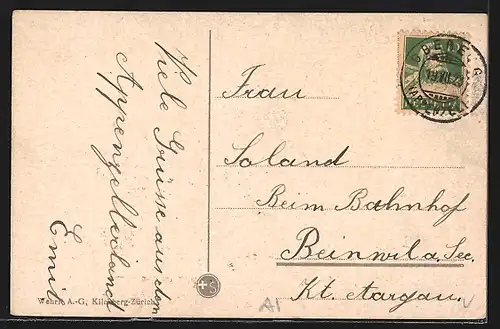 Viele Grüsse aus dem
Appenzellerland
Emil
Wehrli A.-G., Kilchberg-Zürich
Frau
Soland
Beim Bahnhof
Beinwil a. See.
Kt. Aargau.
OBEREGG
AI
V